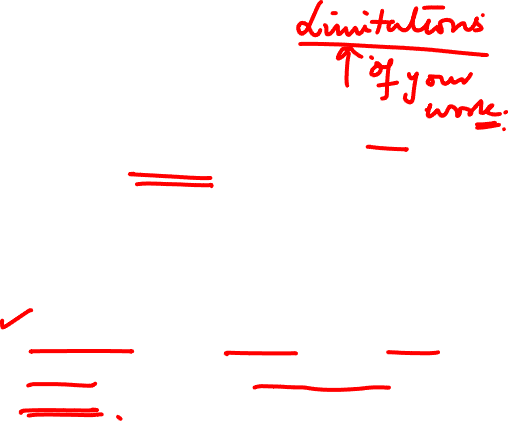 Limitations
of your
work.